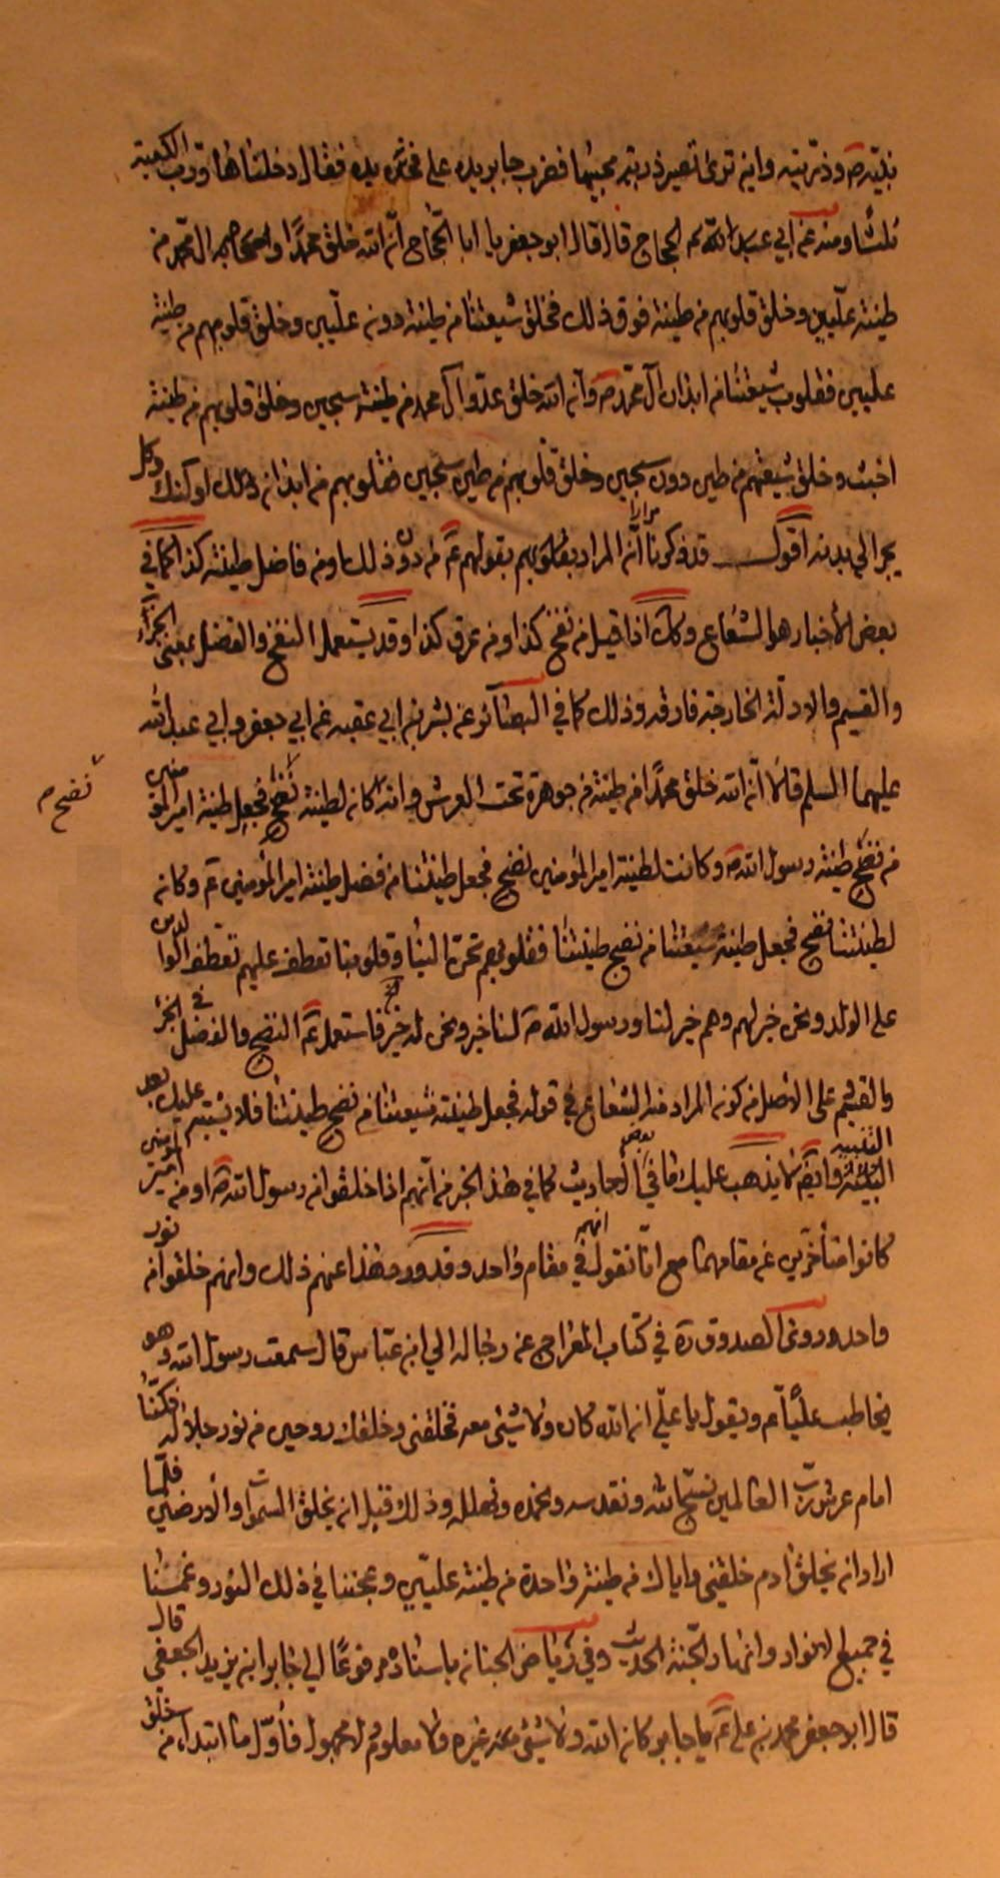 نبيّه ص وذرّيّته واين ترى تصير ذريّته محبيها فضرب جابر يده على يده فقال دخلناها وربّ الكعبة
ثلثا ومنه عن ابي عبد الله بن الحجاج قال قال ابو جعفر يا ابا الحجّاج انّ الله خلق محمّدًا وآل محمّد من
طينة علّيين وخلق قلوبهم من طينة فوق ذلك فخلق شيعتنا من طينة دون علّيين وخلق قلوبهم من طينة
علّيين فقلوب شيعتنا من ابدان آل محمّد ص وانّ الله خلق عدوّ آل محمد من طينة سجين وخلق قلوبهم من طينة
اخبث وخلق شيعتهم من طين دون سجين وخلق قلوبهم من طين سجين فقلوبهم من ابدان اولئك وكل
يجر الى بدنه اقول قد ذكرنا مرارا انّ المراد بقلوبهم بقولهم ع من دون ذلك او من فاضل طينة كذا كما في
بعض الأخبار هو الشعاع وكك اذا قيل من نضح كذا او من عرق كذا وقد يستعمل النضح والفضل بمعنى الجزء
والقسيم والادلّة الخارجة فارقة وذلك كما في البصائر عن بشر بن ابي عقبه عن ابي جعفر وابي عبد الله
عليهما السلم قالا انّ الله خلق محمدًا من طينة من جوهرة تحت العرش وانه كان لطينته نضح فجعل طينة امير المؤمنين
نضح م
من نضح طينة رسول الله ص وكانت لطينة امير المؤمنين نضح فجعل طينتنا من فضل طينة امير المؤمنين ع وكان
لطينتنا نضح فجعل طينة شيعتنا من نضح طينتنا فقلوبهم تحنّ الينا وقلوبنا تعطف عليهم تعطف الوالدين
على الولد ونحن خير لهم وهم خير لنا ورسول الله ص لنا خير ونحن له خير فاستعمل ع النضح والفضل في الجزء
والقسيم على الاصل من كون المراد منه الشعاع في قوله فجعل طينة شيعتنا من نضح طينتنا فلا يشتبه عليك بعد
التنبيه وايضا لا يذهب عليك ما في بعض الاحاديث كما في هذا الخبر من انهم اذا خلقوا من رسول الله ص او من امير المؤمنين
كانوا متأخّرين عن مقامهما مع انّا نقول انهم في مقام واحد وقد ورد هذا عنهم ذلك وانهم خلقوا من نور
واحد وروى الصدوق ره في كتاب المعراج عن رجاله الى ابن عبّاس قال سمعت رسول الله وهو
يخاطب عليًّا ع ويقول يا عليّ ان الله كان ولا شيئ معه فخلقني وخلقك روحين من نور جلاله فكنّا
امام عرش ربّ العالمين نسبّح الله ونقدسه ونحمده ونهلله وذلك قبل ان يخلق السموات والأرضين فلمّا
اراد ان يخلق ادم خلقني واياك من طينة واحدة من طينة علّيين وعجننا في ذلك النور وغمسنا
في جميع الانوار وانهار الجّنة الحديث وفي رياض الجنان باسناده مرفوعًا الى جابر ابن يزيد الجعفي قال
قال ابو جعفر محمد بن علي ع يا جابر كان الله ولا شيئ غيره ولا معلوم ولا مجهول فأوّل ما ابتدأ من خلق